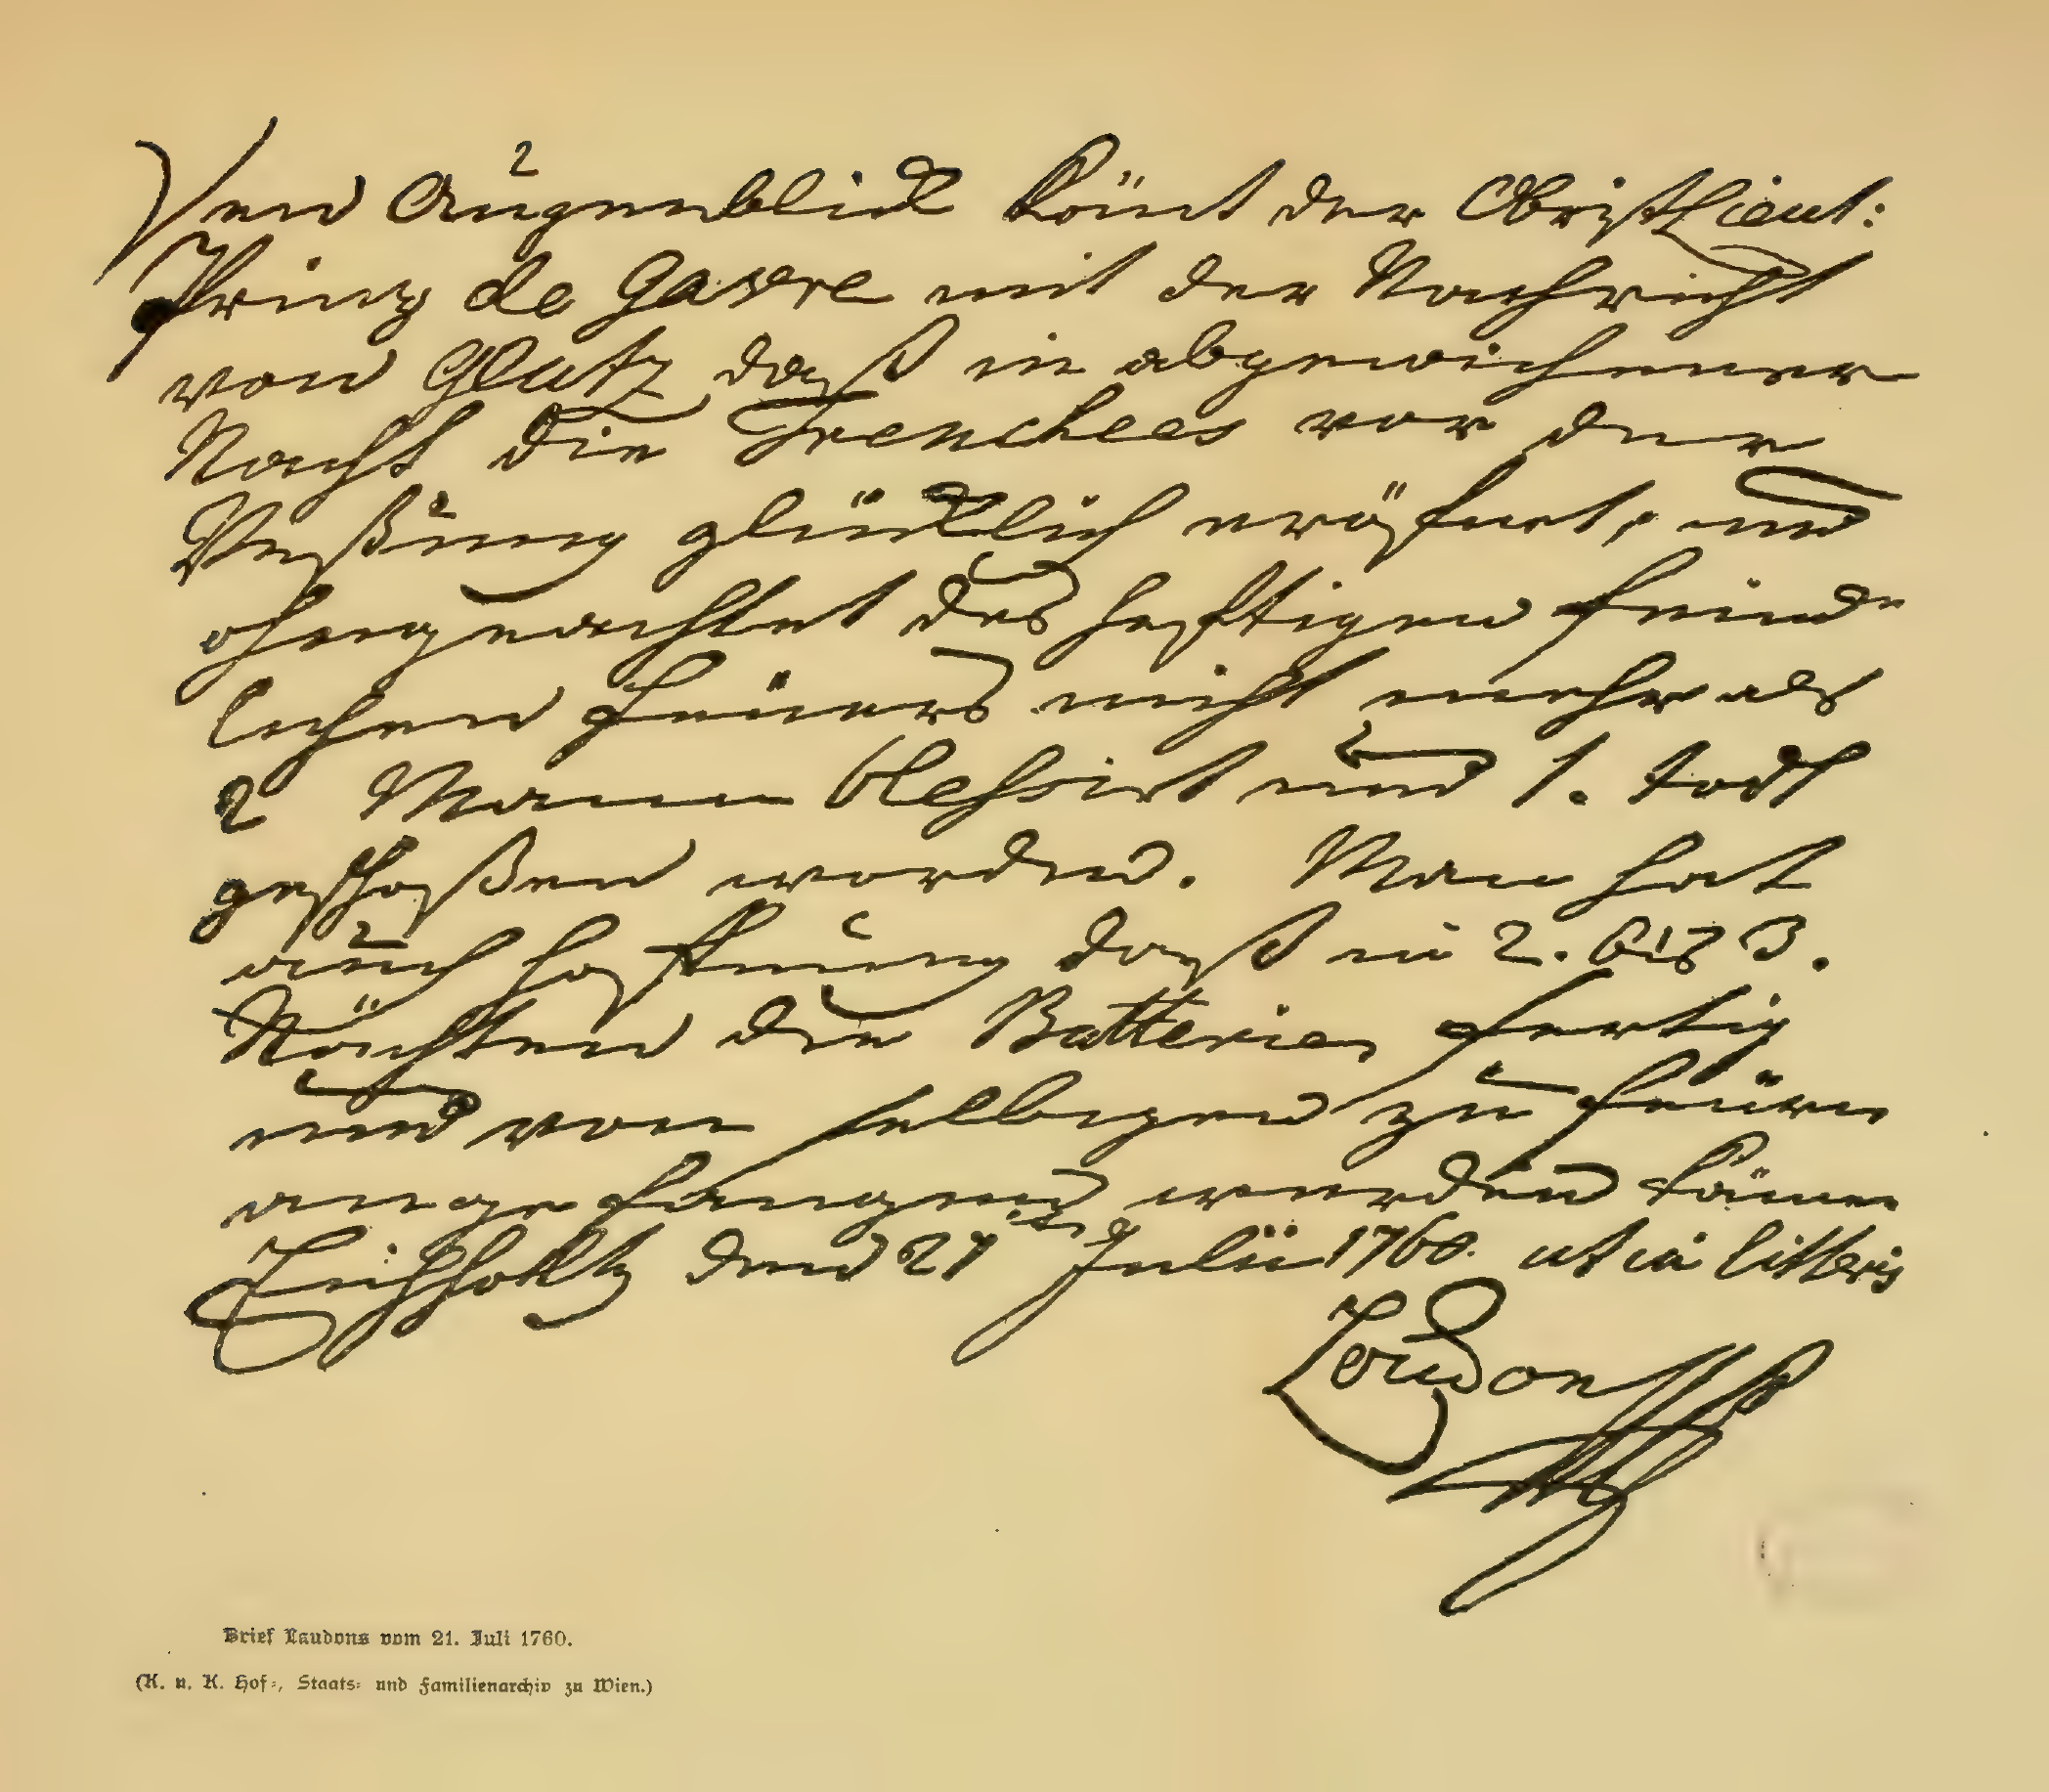 Den Augenblick kömt der Obristlieut:
Prinz de Gavre mit der Nachricht
von Glatz daß in abgewichener
Nacht die Trenchees vor der
Vestung glücklich eröfnet, und
ohngeachtet des heftigen feind-
lichen Feuers nicht mehr als
2 Mann blessirt und 1. todt
geschoßen worden. Man hat
auch hoffnung daß in 2. bis 3.
Nächten die Batterien fertig
und von selbigen zu feuern
angefangen werden könne
den 21 Julii 1760. ut in litteris
Loudon
Brief Laudons vom 21. Juli 1760.
(K. u. K. Hof-, Staats- und Familienarchiv zu Wien.)